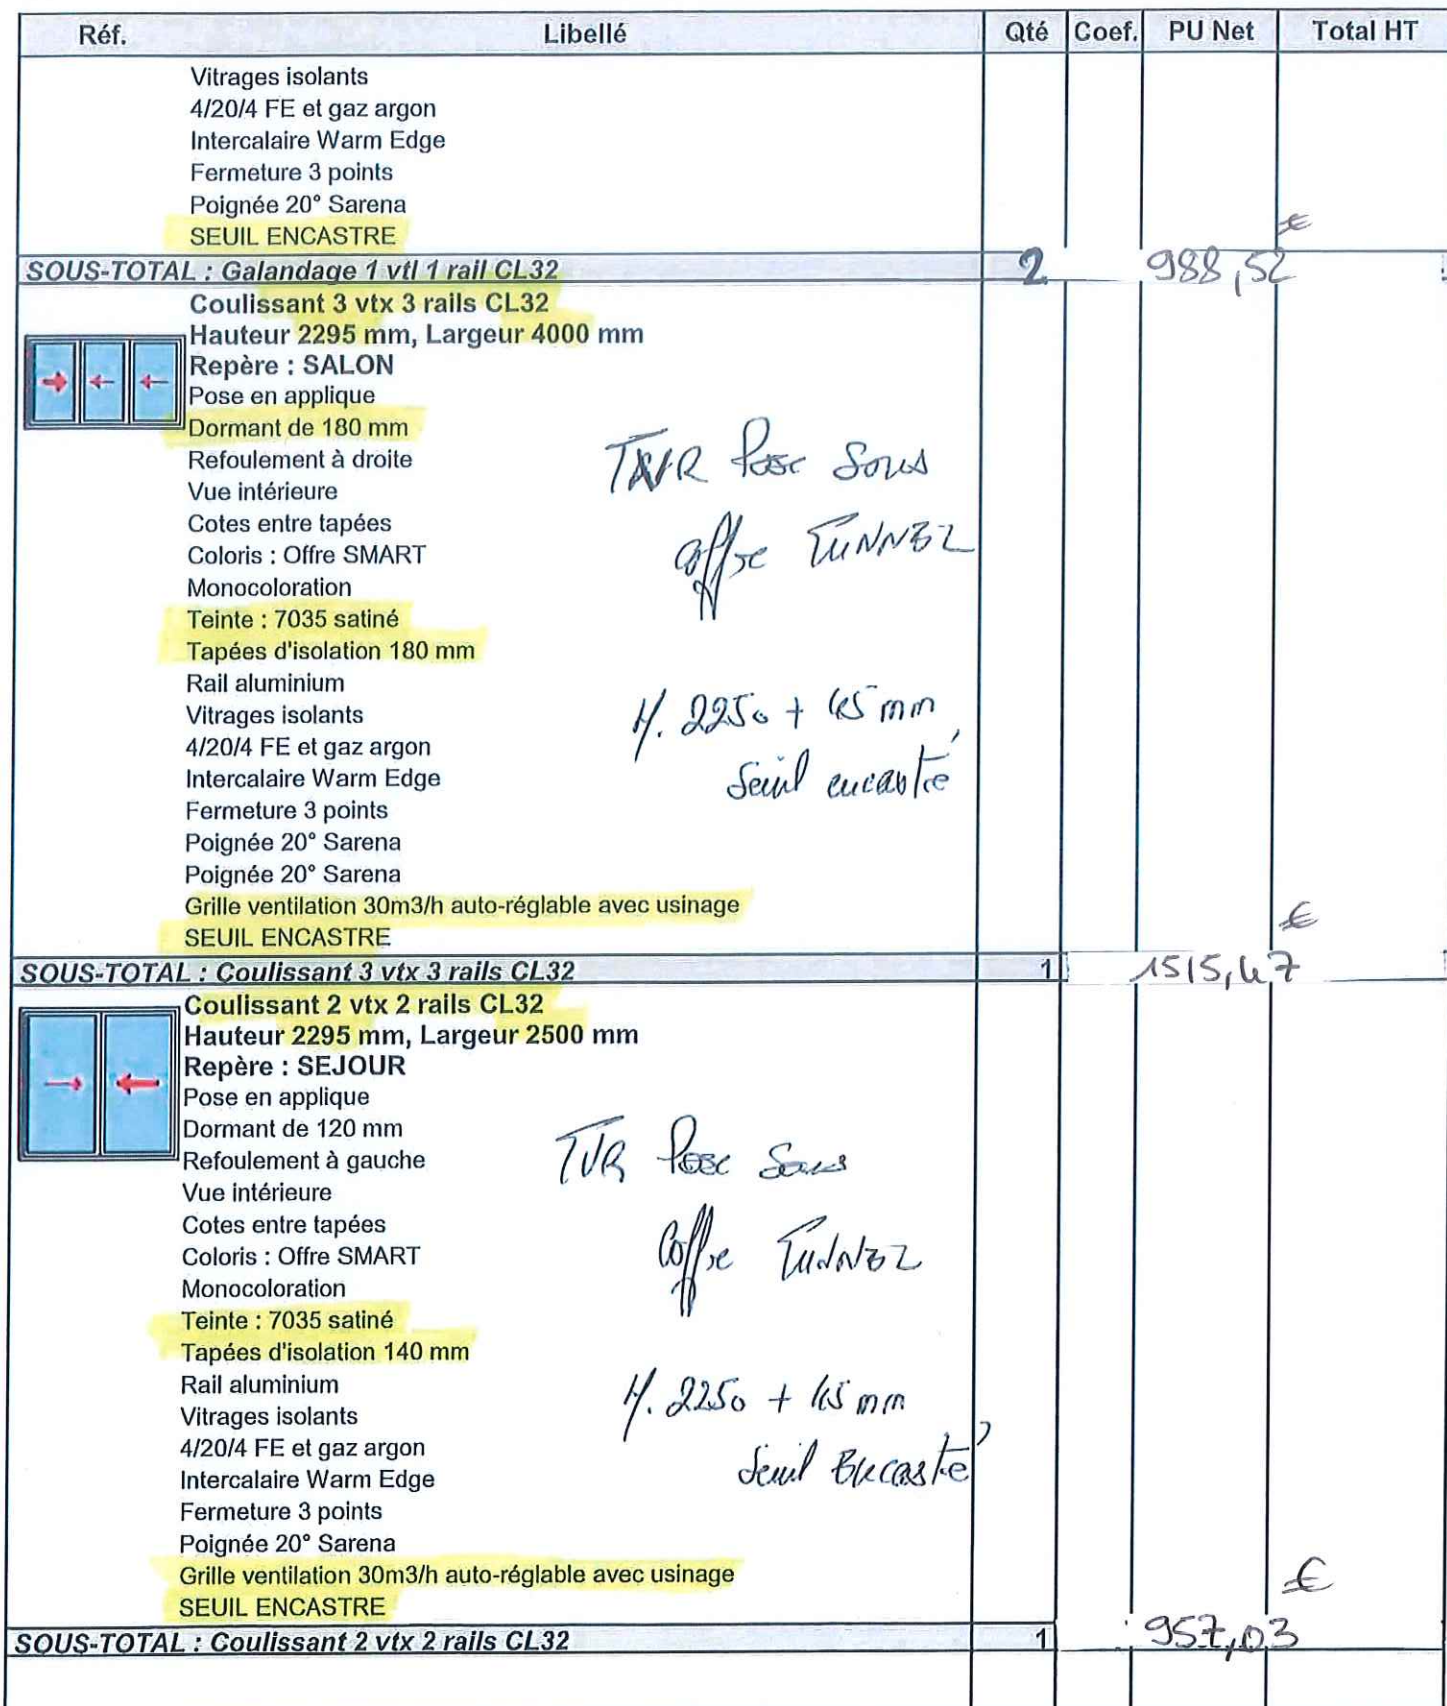 Réf. Libellé Qté Coef. PU Net Total HT
Vitrages isolants
4/20/4 FE et gaz argon
Intercalaire Warm Edge
Fermeture 3 points
Poignée 20° Sarena
SEUIL ENCASTRE
€
SOUS-TOTAL : Galandage 1 vtl 1 rail CL32 2 988,52
Coulissant 3 vtx 3 rails CL32
Hauteur 2295 mm, Largeur 4000 mm
Repère : SALON
Pose en applique
Dormant de 180 mm
Refoulement à droite
Vue intérieure
Cotes entre tapées
Coloris : Offre SMART
Monocoloration
Teinte : 7035 satiné
Tapées d'isolation 180 mm
Rail aluminium
Vitrages isolants
4/20/4 FE et gaz argon
Intercalaire Warm Edge
Fermeture 3 points
Poignée 20° Sarena
Poignée 20° Sarena
Grille ventilation 30m3/h auto-réglable avec usinage
SEUIL ENCASTRE
Pose Sous
Coffre TUNNEL
H. 2250 + 45 mm
Seuil encastré
€
SOUS-TOTAL : Coulissant 3 vtx 3 rails CL32 1 1515,47
Coulissant 2 vtx 2 rails CL32
Hauteur 2295 mm, Largeur 2500 mm
Repère : SEJOUR
Pose en applique
Dormant de 120 mm
Refoulement à gauche
Vue intérieure
Cotes entre tapées
Coloris : Offre SMART
Monocoloration
Teinte : 7035 satiné
Tapées d'isolation 140 mm
Rail aluminium
Vitrages isolants
4/20/4 FE et gaz argon
Intercalaire Warm Edge
Fermeture 3 points
Poignée 20° Sarena
Grille ventilation 30m3/h auto-réglable avec usinage
SEUIL ENCASTRE
TVR Pose Sous
Coffre TUNNEL
H. 2250 + 45 mm
Seuil Encastré
€
SOUS-TOTAL : Coulissant 2 vtx 2 rails CL32 1 957,03